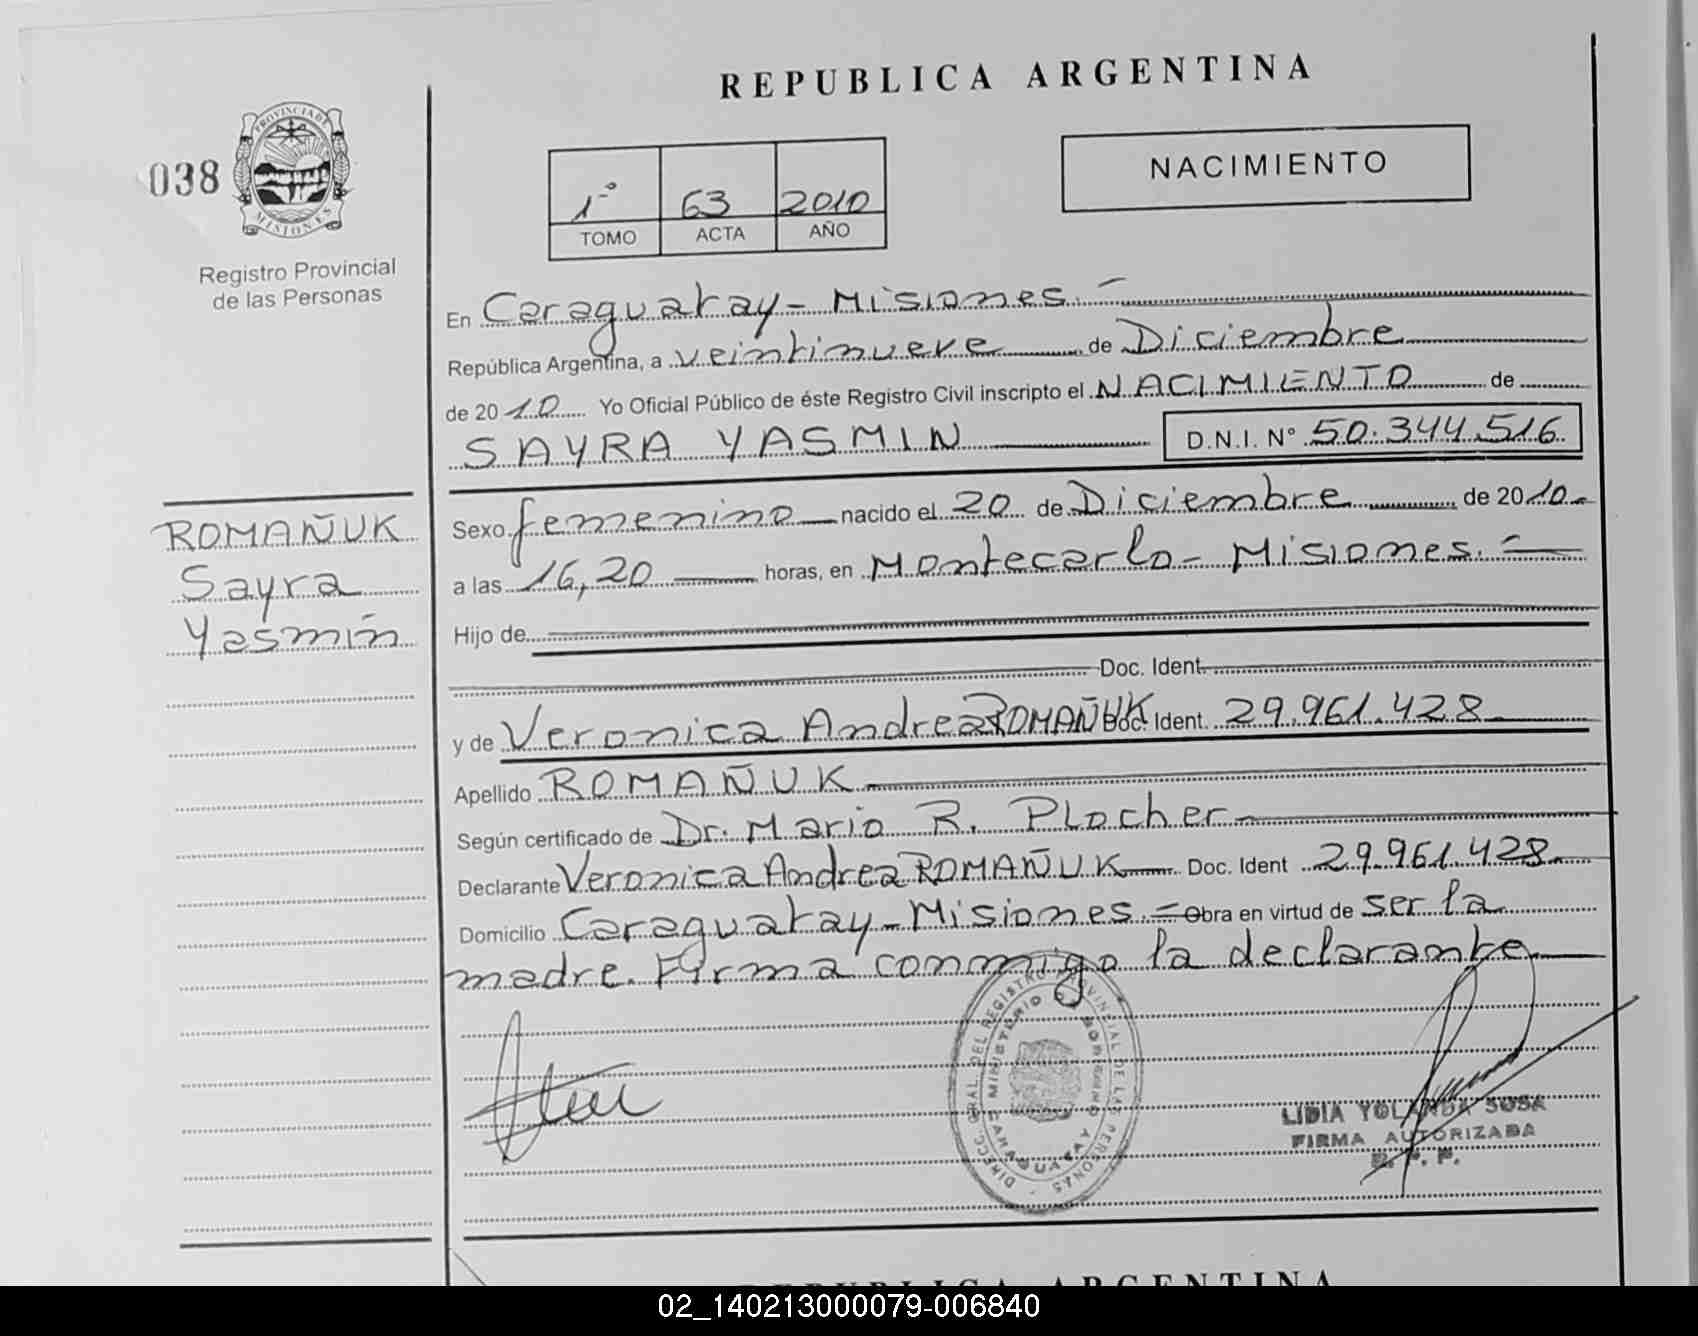 REPUBLICA ARGENTINA
038
PROVINCIA DE MISIONES
Registro Provincial
de las Personas
1º 63 2010
TOMO ACTA AÑO
NACIMIENTO
En Caraguatay - Misiones. -
República Argentina, a veintinueve de Diciembre
de 2010 Yo Oficial Público de éste Registro Civil inscripto el NACIMIENTO de
SAYRA YASMIN D.N.I. Nº 50.344.516
ROMAÑUK
Sayra
Yasmin
Sexo femenino nacido el 20 de Diciembre de 2010.-
a las 16,20 horas, en Montecarlo - Misiones. -
Hijo de
Doc. Ident.
y de Veronica Andrea ROMAÑUK Doc. Ident. 29.961.428
Apellido ROMAÑUK
Según certificado de Dr. Mario R. Plocher
Declarante Veronica Andrea ROMAÑUK Doc. Ident 29.961.428
Domicilio Caraguatay - Misiones Obra en virtud de ser la
madre. Firma conmigo la declarante
DIRECC. GRAL. DEL REGISTRO PROVINCIAL DE LAS PERSONAS
MINISTERIO DE GOBIERNO
CARAGUATAY
LIDIA YOLANDA SOSA
FIRMA AUTORIZADA
REPUBLICA ARGENTINA
02_140213000079-006840